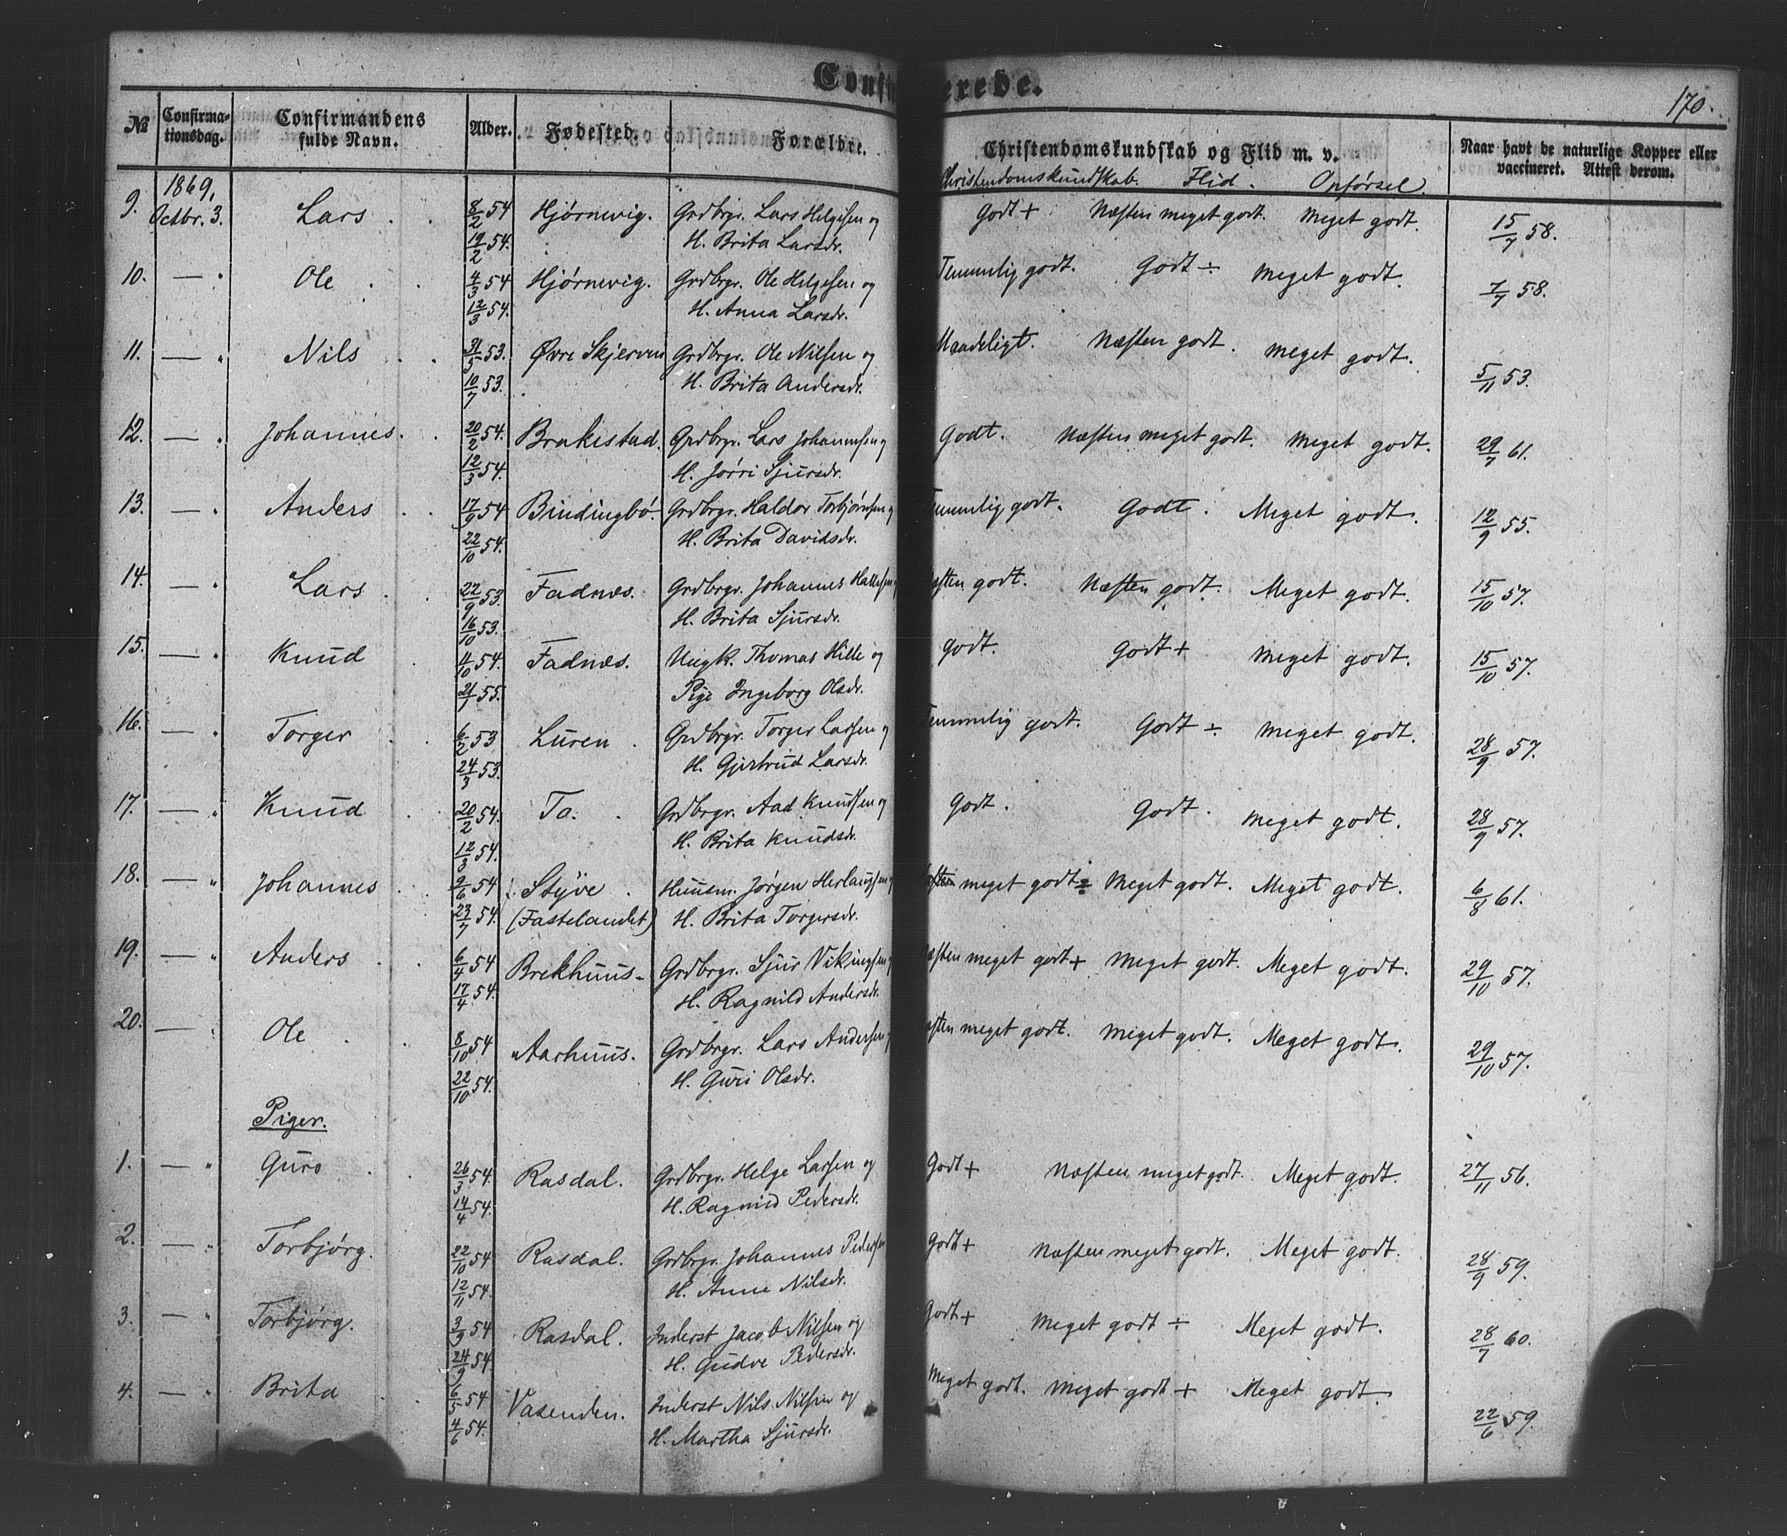 Confi rerede.
170.
№ Confirma-tionsdag. Confirmandens fulde Navn. Alder. Fødested. Forældre. Christendomskundskab og Flid m. v. Naar havt de naturlige Kopper eller vaccineret. Attest derom.
Christendomskundskab. Flid. Opførsel.
1869,
9. Octbr. 3. Lars 8/2 54 Hjørnevig. Grdbrgr. Lars Helgesen og Godt + Næsten meget godt. Meget godt. 15/7 58.
19/2 54. H. Brita Larsdr.
10. — " Ole 4/3 54 Hjørnevig. Grdbrgr. Ole Helgesen og Temmelig godt. Godt ÷ Meget godt. 7/7 58.
12/3 54. H. Anna Larsdr.
11. — " Nils 31/5 53. Øvre Skjerven Grdbrgr. Ole Nilsen og Maadeligt. Næsten godt. Meget godt. 5/11 53.
10/7 53. H. Brita Andersdr.
12. — " Johannes. 20/2 54. Brakestad. Grdbrgr. Lars Johannesen og Godt. Næsten meget godt. Meget godt. 29/7 61.
12/3 54. H. Jørri Sjursdr.
13. — " Anders 17/9 54 Bindingbø. Grdbrgr. Haldor Torbjørnsen og Temmelig godt. Godt. Meget godt. 12/9 55.
22/10 54. H. Brita Davidsdr.
14. — " Lars 22/9 53. Fadnes. Grdbrgr. Johannes Hallesen Næsten godt. Næsten godt. Meget godt. 15/10 57.
16/10 53. H. Brita Sjursdr.
15. — " Knud 4/10 54. Fadnes. Ungk. Thomas Hille og godt. Godt + Meget godt. 15/10 57.
21/1 55. Pige Ingeborg Olsdr.
16. — " Torger 6/2 53 Luren Grdbrgr. Torger Larsen og Temmelig godt. Godt ÷ Meget godt. 28/9 57.
24/3 53. H. Gjertrud Larsdr.
17. — " Knud 20/2 54. Tø. Grdbrgr. Aad Knudsen og Godt. Godt. Meget godt. 28/9 57.
12/3 54. H. Brita Knudsdr.
18. — " Johannes 9/6 54 Styve Huusm. Jørgen Herlaugsen og meget godt ÷ Meget godt. Meget godt. 6/8 61.
23/7 54. (Fastelandet) H. Brita Torgersdr.
19. — " Anders 6/4 54 Brekhuus Grdbrgr. Sjur Vikingsen og Næsten meget godt + Meget godt. Meget godt. 29/10 57.
17/4 54. H. Ragnild Andersdr.
20. — " Ole 8/10 54 Aarhuus. Grdbrgr. Lars Andersen og Næsten meget godt. Meget godt. Meget godt. 29/10 57.
22/10 54. H. Guri Olsdr.
Piger.
1. — " Guro 26/3 54. Rasdal. Grdbrgr. Helge Larsen og Godt + Næsten meget godt. Meget godt. 27/11 56.
14/4 54. H. Ragnild Pedersdr.
2. — " Torbjørg. 22/10 54 Rasdal. Grdbrgr. Johannes Pedersen Godt + Næsten meget godt. Meget godt. 28/9 59.
12/11 54. H. Anne Nilsdr.
3. — " Torbjørg. 3/9 54 Rasdal. Inderst Jacob Nilsen og Godt + Meget godt ÷ Meget godt. 28/7 60.
24/9 54. H. Gudve Pedersdr.
4. — " Brita 6/5 54 Vasenden. Inderst Nils Nilsen og Meget godt. Meget godt + Meget godt 22/6 59.
4/6 54. H. Martha Sjursdr.